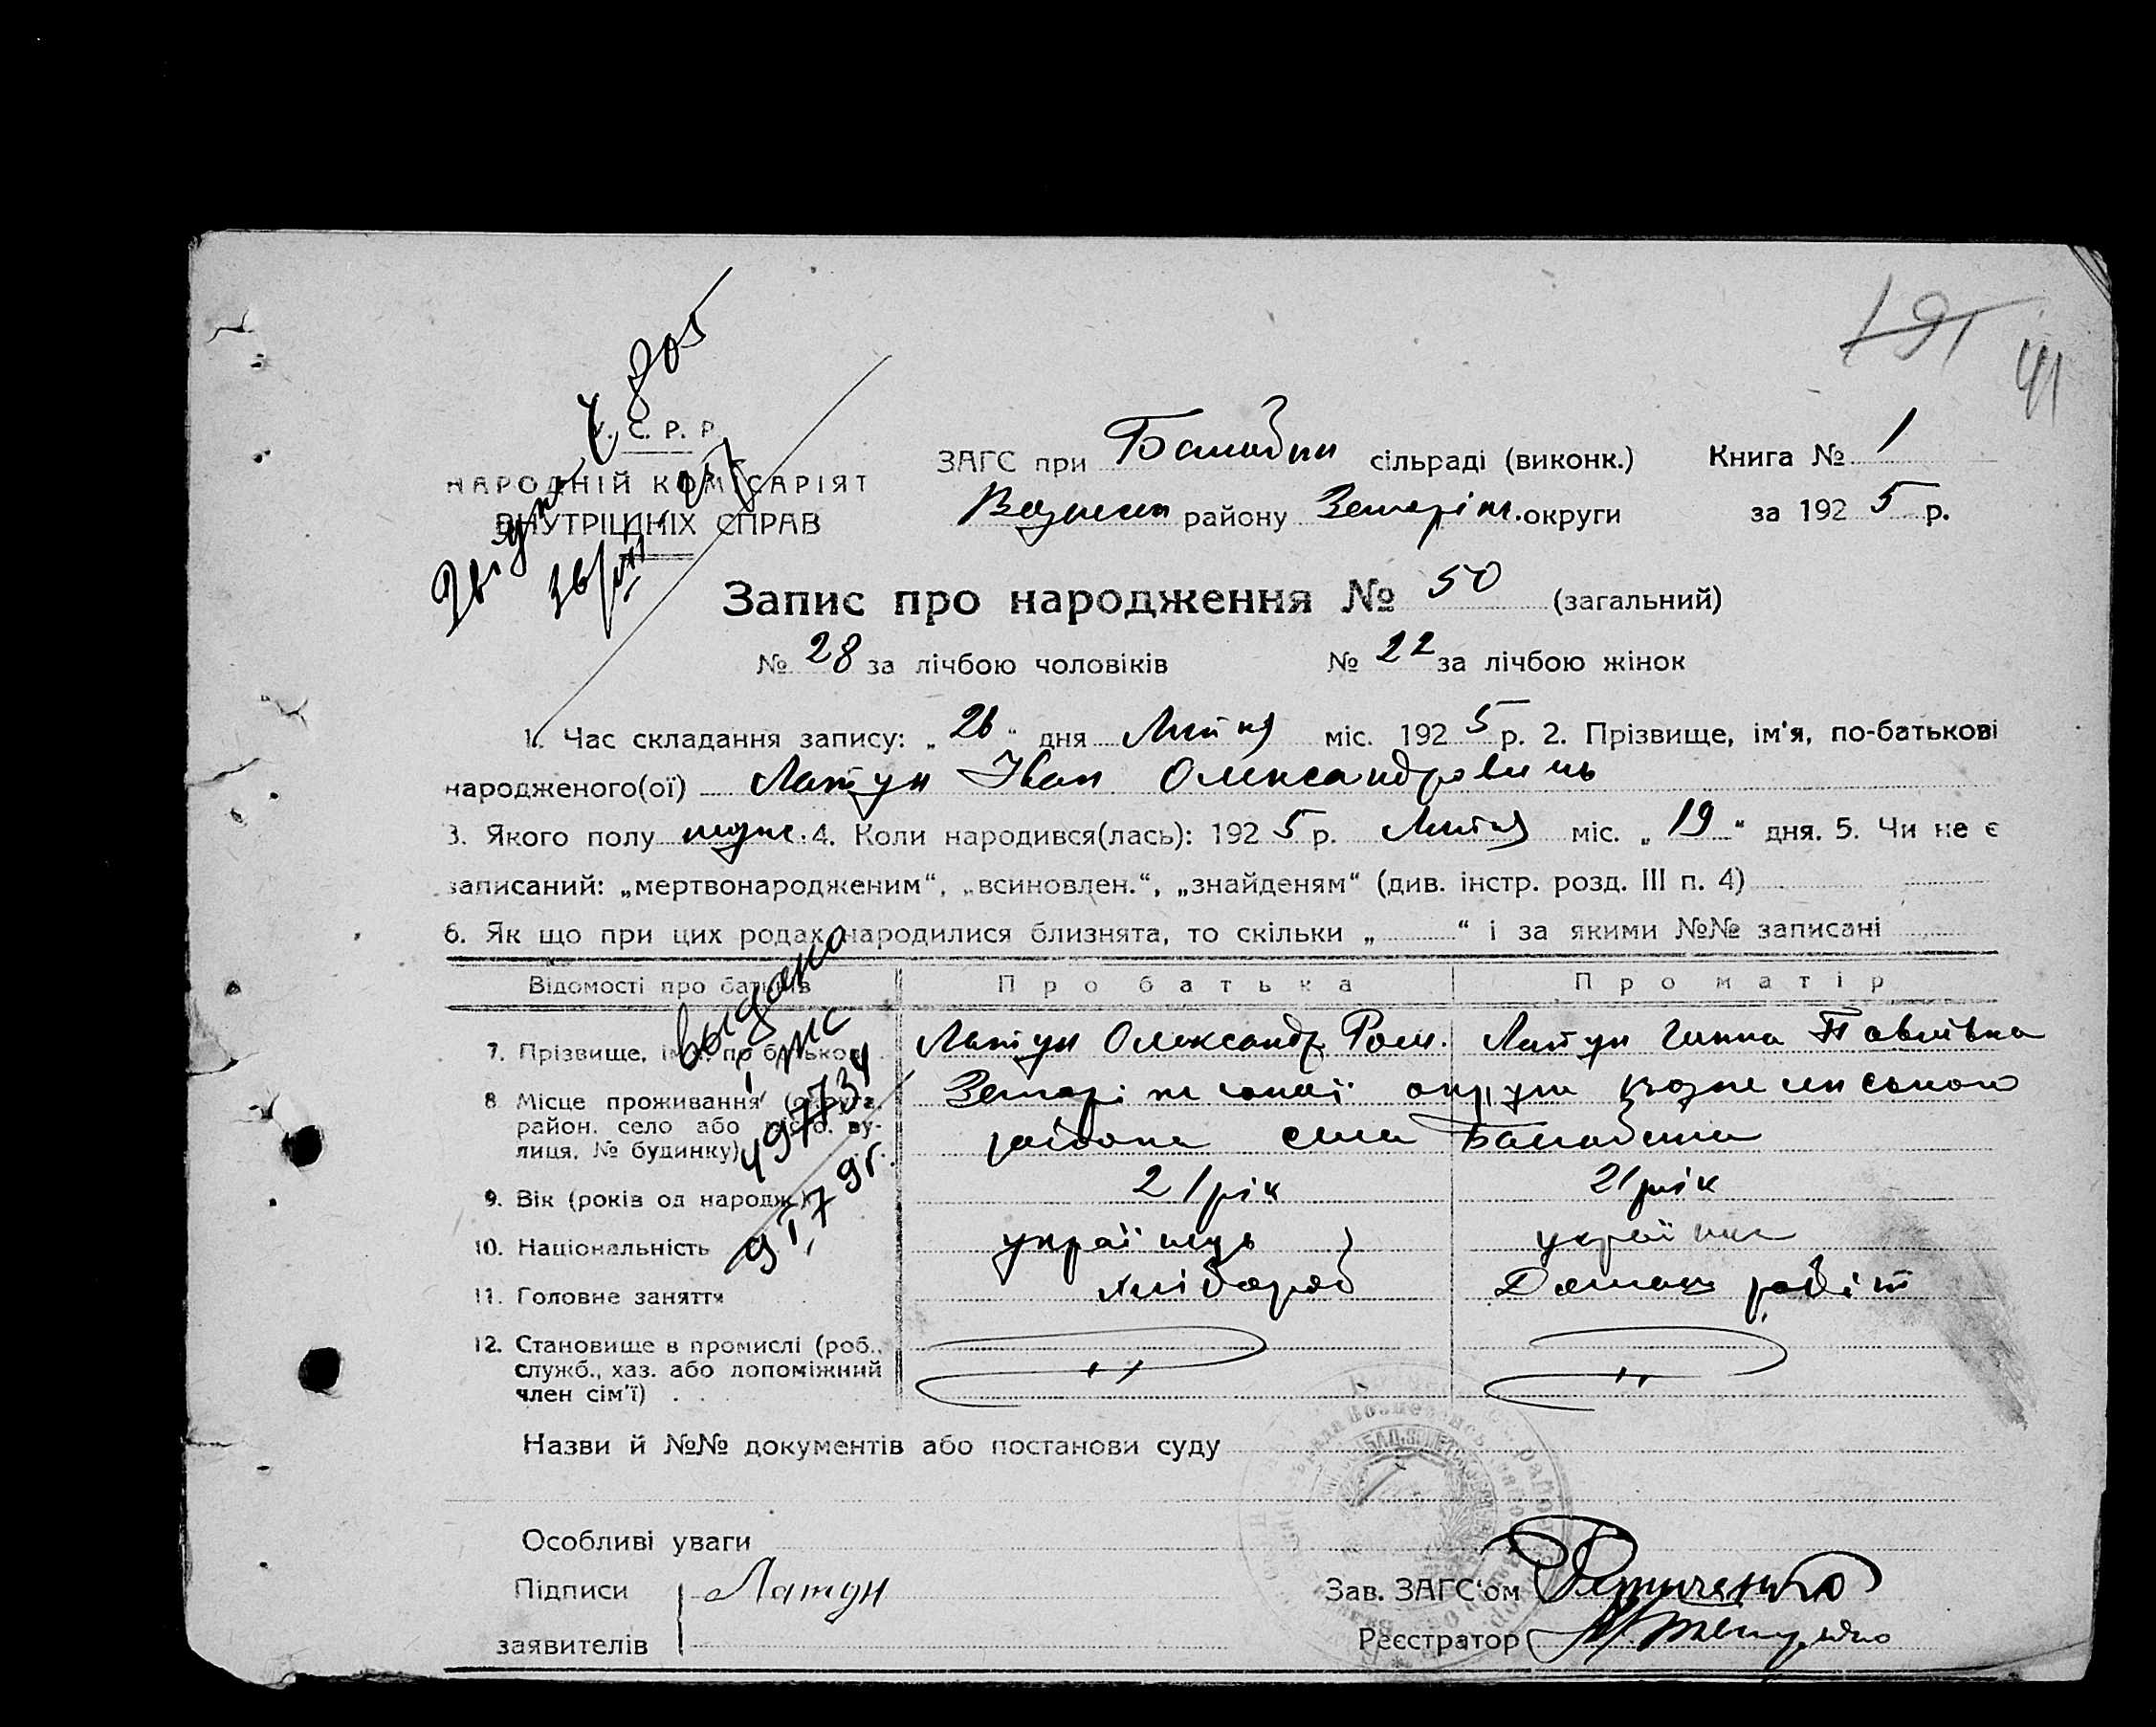 191 41
У. С. Р. Р.
НАРОДНІЙ КОМІСАРІЯТ
ВНУТРІШНІХ СПРАВ
ЗАГС при Балабин сільраді (виконк.) Книга № 1
району округи за 192 5 р.
Запис про народження № 50 (загальний)
№ 28 за лічбою чоловіків № 22 за лічбою жінок
1. Час складання запису: „ 26 “ дня Липня міс. 192 5 р. 2. Прізвище, ім'я, по-батькові
народженого(ої) Латун Іван Олександровичь
3. Якого полу муж. 4. Коли народився(лась): 192 5 р. Липня міс. „ 19 “ дня. 5. Чи не є
записаний: „мертвонародженим“, „всиновлен.“, „знайденям“ (див. інстр. розд. III п. 4)
6. Як що при цих родах народилися близнята, то скільки „ “ і за якими №№ записані
Відомості про батьків Про батька Про матір
7. Прізвище, ім'я, по батькові Латун Олександр Ром. Латун Ганна Павлівна
8. Місце проживання (округа, район, село або місто, вулиця, № будинку) Запоріжської округи Вознесенського
района села Балабина
9. Вік (років од народж.) 21 рік 21 рік
10. Національність українець українка
11. Головне заняття хлібороб Домаш робіт
12. Становище в промислі (роб.,
служб., хаз. або допоміжний
член сім'ї)
выдано
497734
9 I 79г.
Назви й №№ документів або постанови суду
Особливі уваги
Підписи Латун Зав. ЗАГС'ом
заявителів Реєстратор